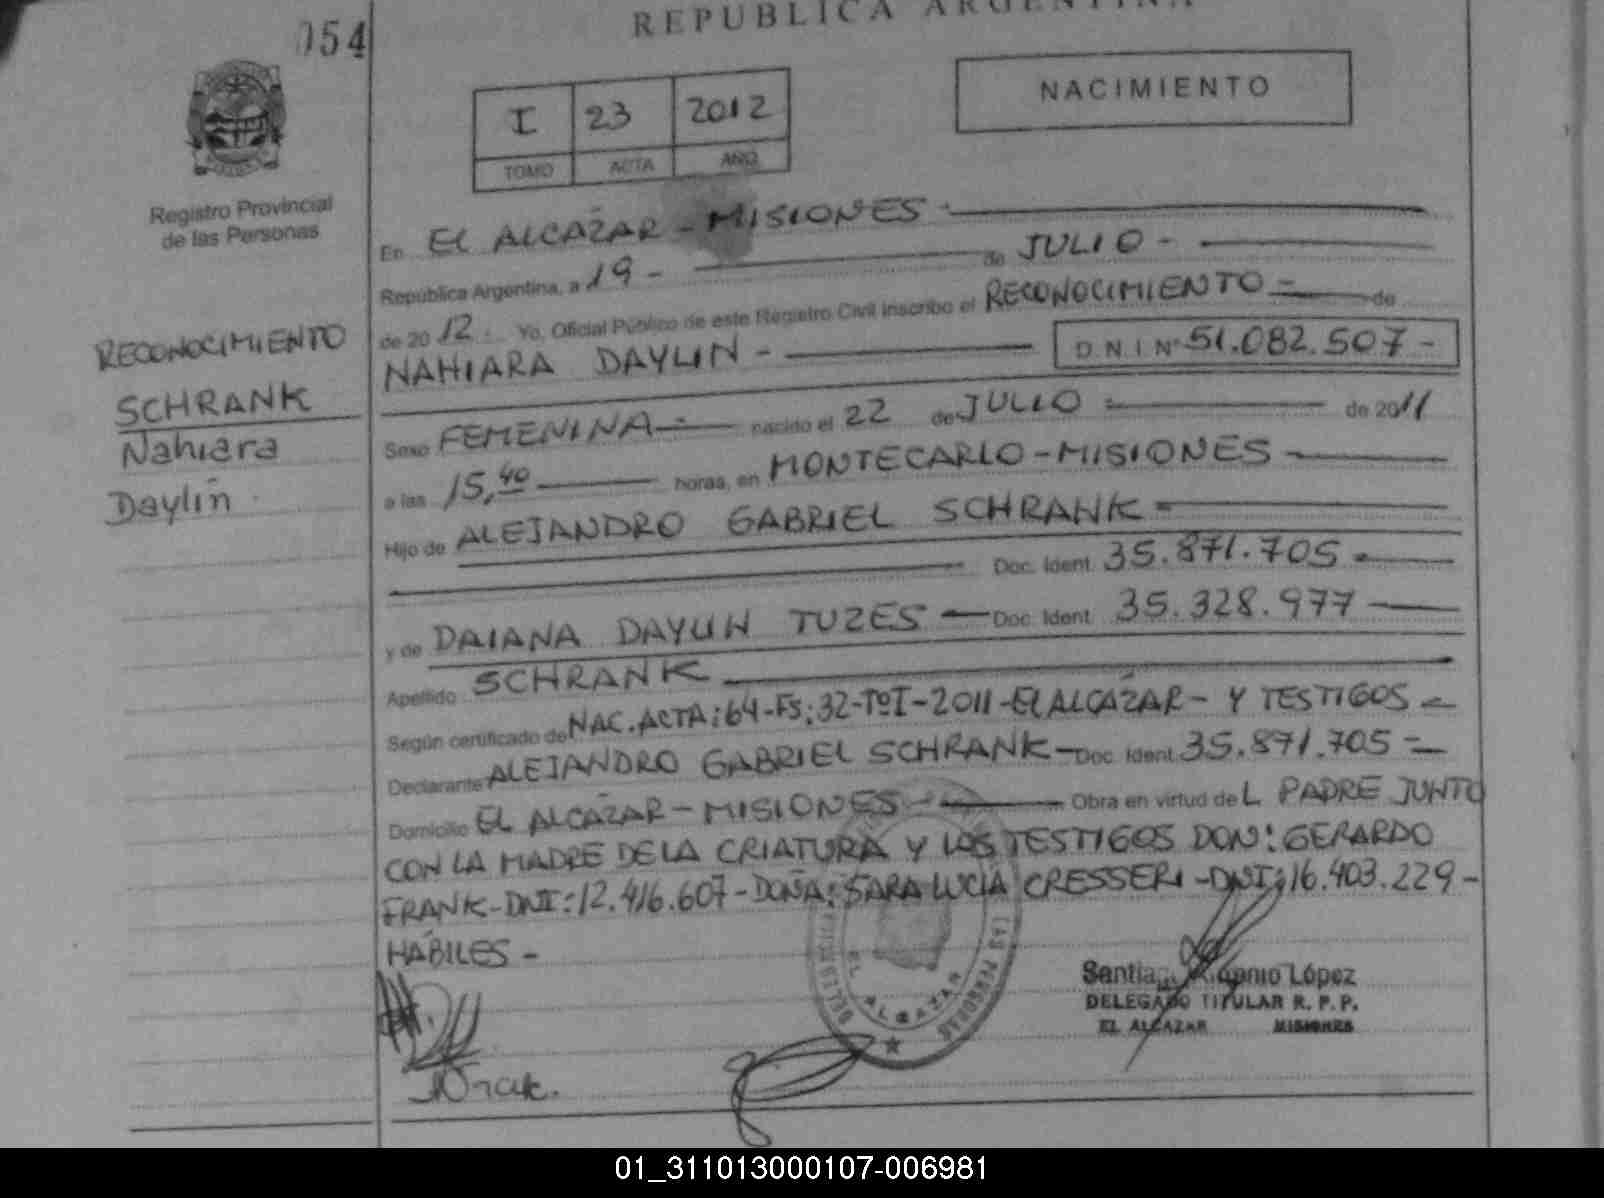 054
REPUBLICA ARGENTINA
I 23 2012
TOMO ACTA AÑO
NACIMIENTO
Registro Provincial
de las Personas
En EL ALCAZAR - MISIONES -
República Argentina, a 19 - de JULIO -
de 20 12. Yo, Oficial Público de este Registro Civil inscribo el RECONOCIMIENTO - de
NAHIARA DAYLIN - D.N.I. Nº 51.082.507 -
RECONOCIMIENTO
SCHRANK
Nahiara
Daylin
Sexo FEMENINA - nacido el 22 de JULIO - de 2011
a las 15,40 horas, en MONTECARLO - MISIONES
Hijo de ALEJANDRO GABRIEL SCHRANK -
Doc. Ident. 35.871.705 -
y de DAIANA DAYLIN TUZES - Doc. Ident. 35.328.977
Apellido SCHRANK
Según certificado de NAC. ACTA: 64 - Fs: 32 - TºI - 2011 - EL ALCAZAR - Y TESTIGOS -
Declarante ALEJANDRO GABRIEL SCHRANK - Doc. Ident. 35.871.705 -
Domicilio EL ALCAZAR - MISIONES - Obra en virtud de L PADRE JUNTO
CON LA MADRE DE LA CRIATURA Y LOS TESTIGOS DON: GERARDO
FRANK - DNI: 12.416.607 - DOÑA: SARA LUCIA CRESSERI - DNI: 16.403.229 -
HÁBILES -
LAS PERSONAS
EL ALCAZAR
López
DELEGADO TITULAR R. P. P.
EL ALCAZAR MISIONES
01_311013000107-006981